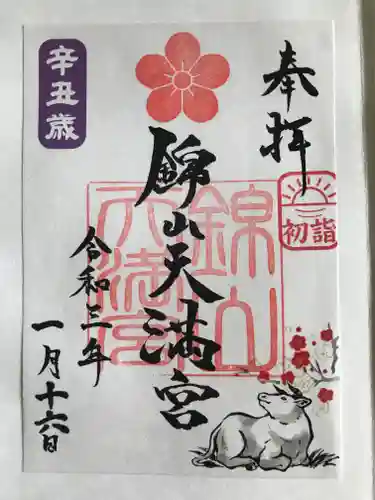 奉拝
初詣
錦山天満宮
錦山
天満宮
令和三年
一月十六日
辛丑歳